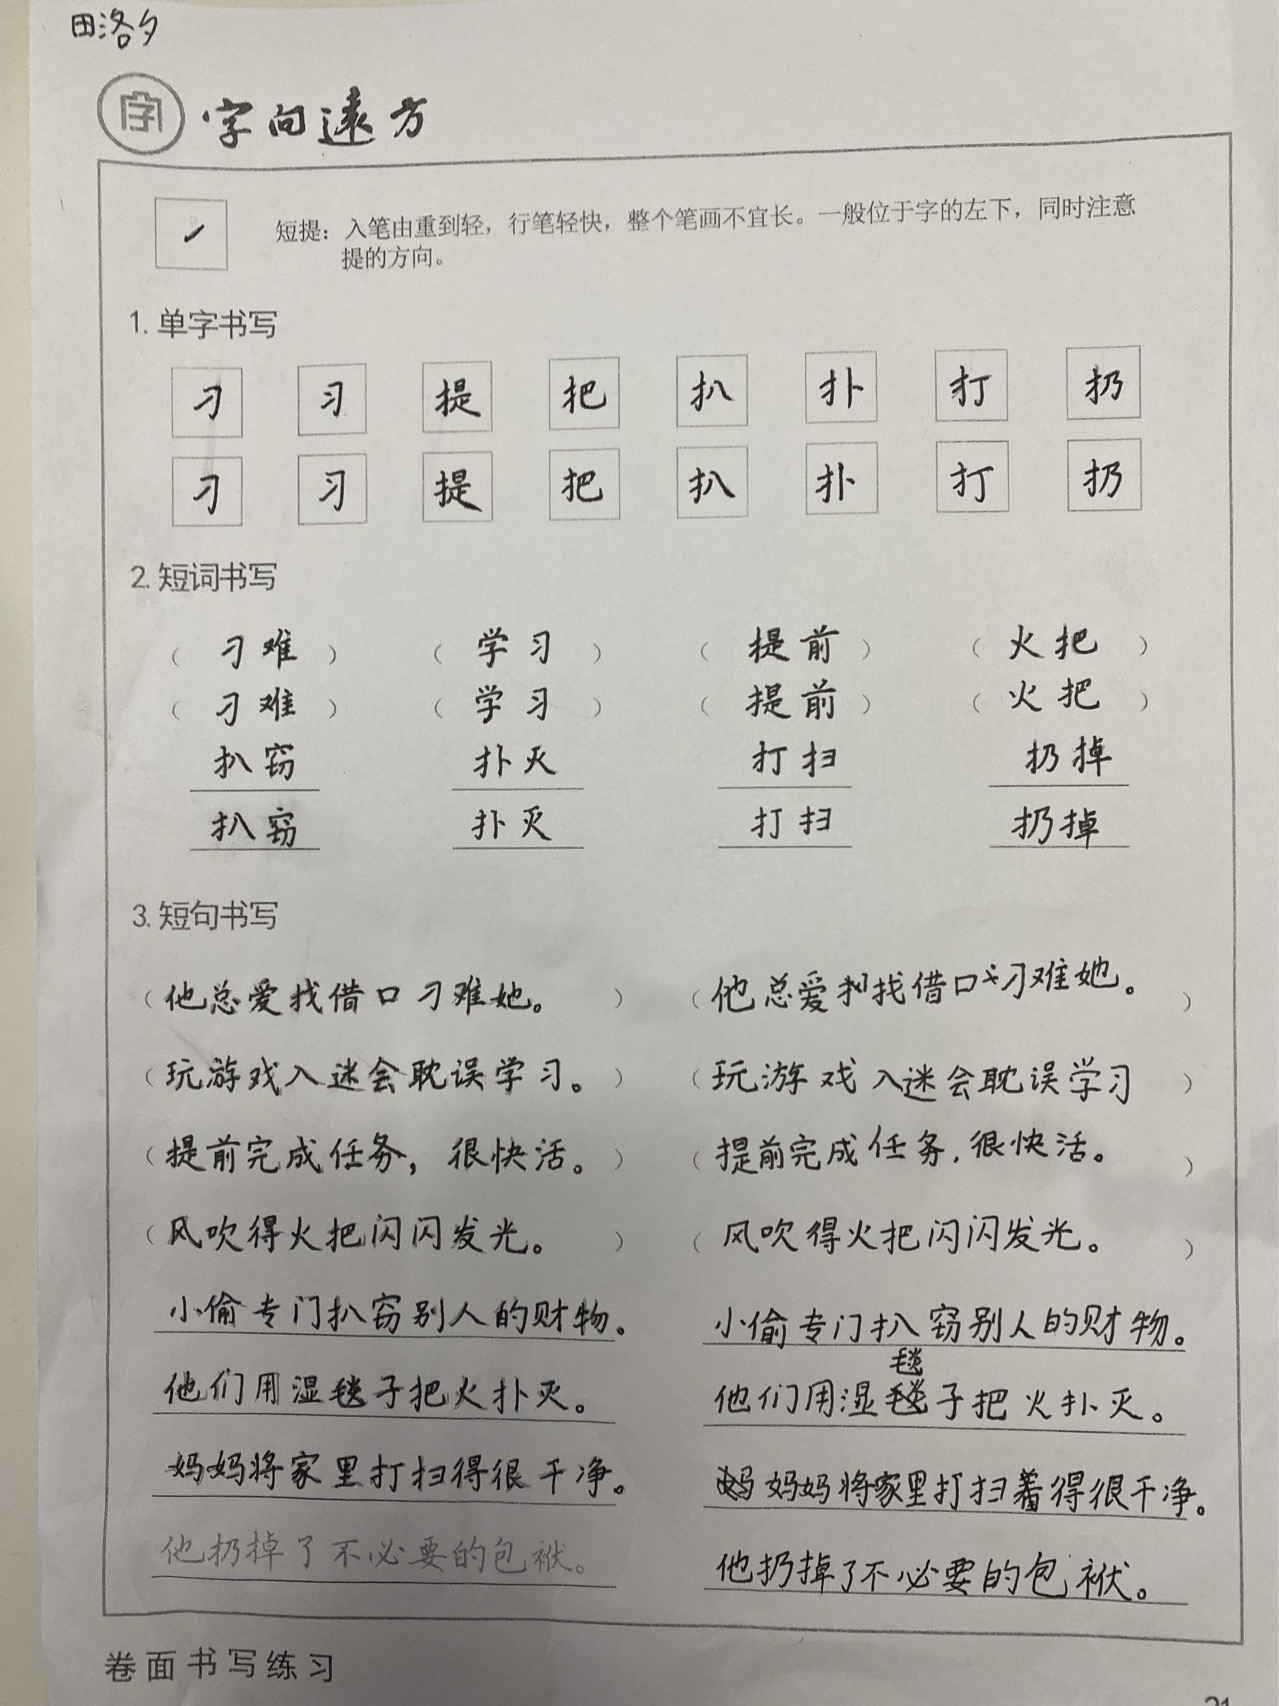 田洛夕
字 字向遠方
短提：入笔由重到轻，行笔轻快，整个笔画不宜长。一般位于字的左下，同时注意
提的方向。
1. 单字书写
刁 习 提 把 扒 扑 打 扔
刁 习 提 把 扒 扑 打 扔
2. 短词书写
（刁难） （学习） （提前） （火把）
（刁难） （学习） （提前） （火把）
扒窃 扑灭 打扫 扔掉
扒窃 扑灭 打扫 扔掉
3. 短句书写
（他总爱找借口刁难她。） （他总爱找借口刁难她。）
（玩游戏入迷会耽误学习。） （玩游戏入迷会耽误学习）
（提前完成任务，很快活。） （提前完成任务，很快活。）
（风吹得火把闪闪发光。） （风吹得火把闪闪发光。）
小偷专门扒窃别人的财物。 小偷专门扒窃别人的财物。
毯
他们用湿毯子把火扑灭。 他们用湿毯子把火扑灭。
妈妈将家里打扫得很干净。 妈妈妈将家里打扫着得很干净。
他扔掉了不必要的包袱。 他扔掉了不必要的包袱。
卷面书写练习
21